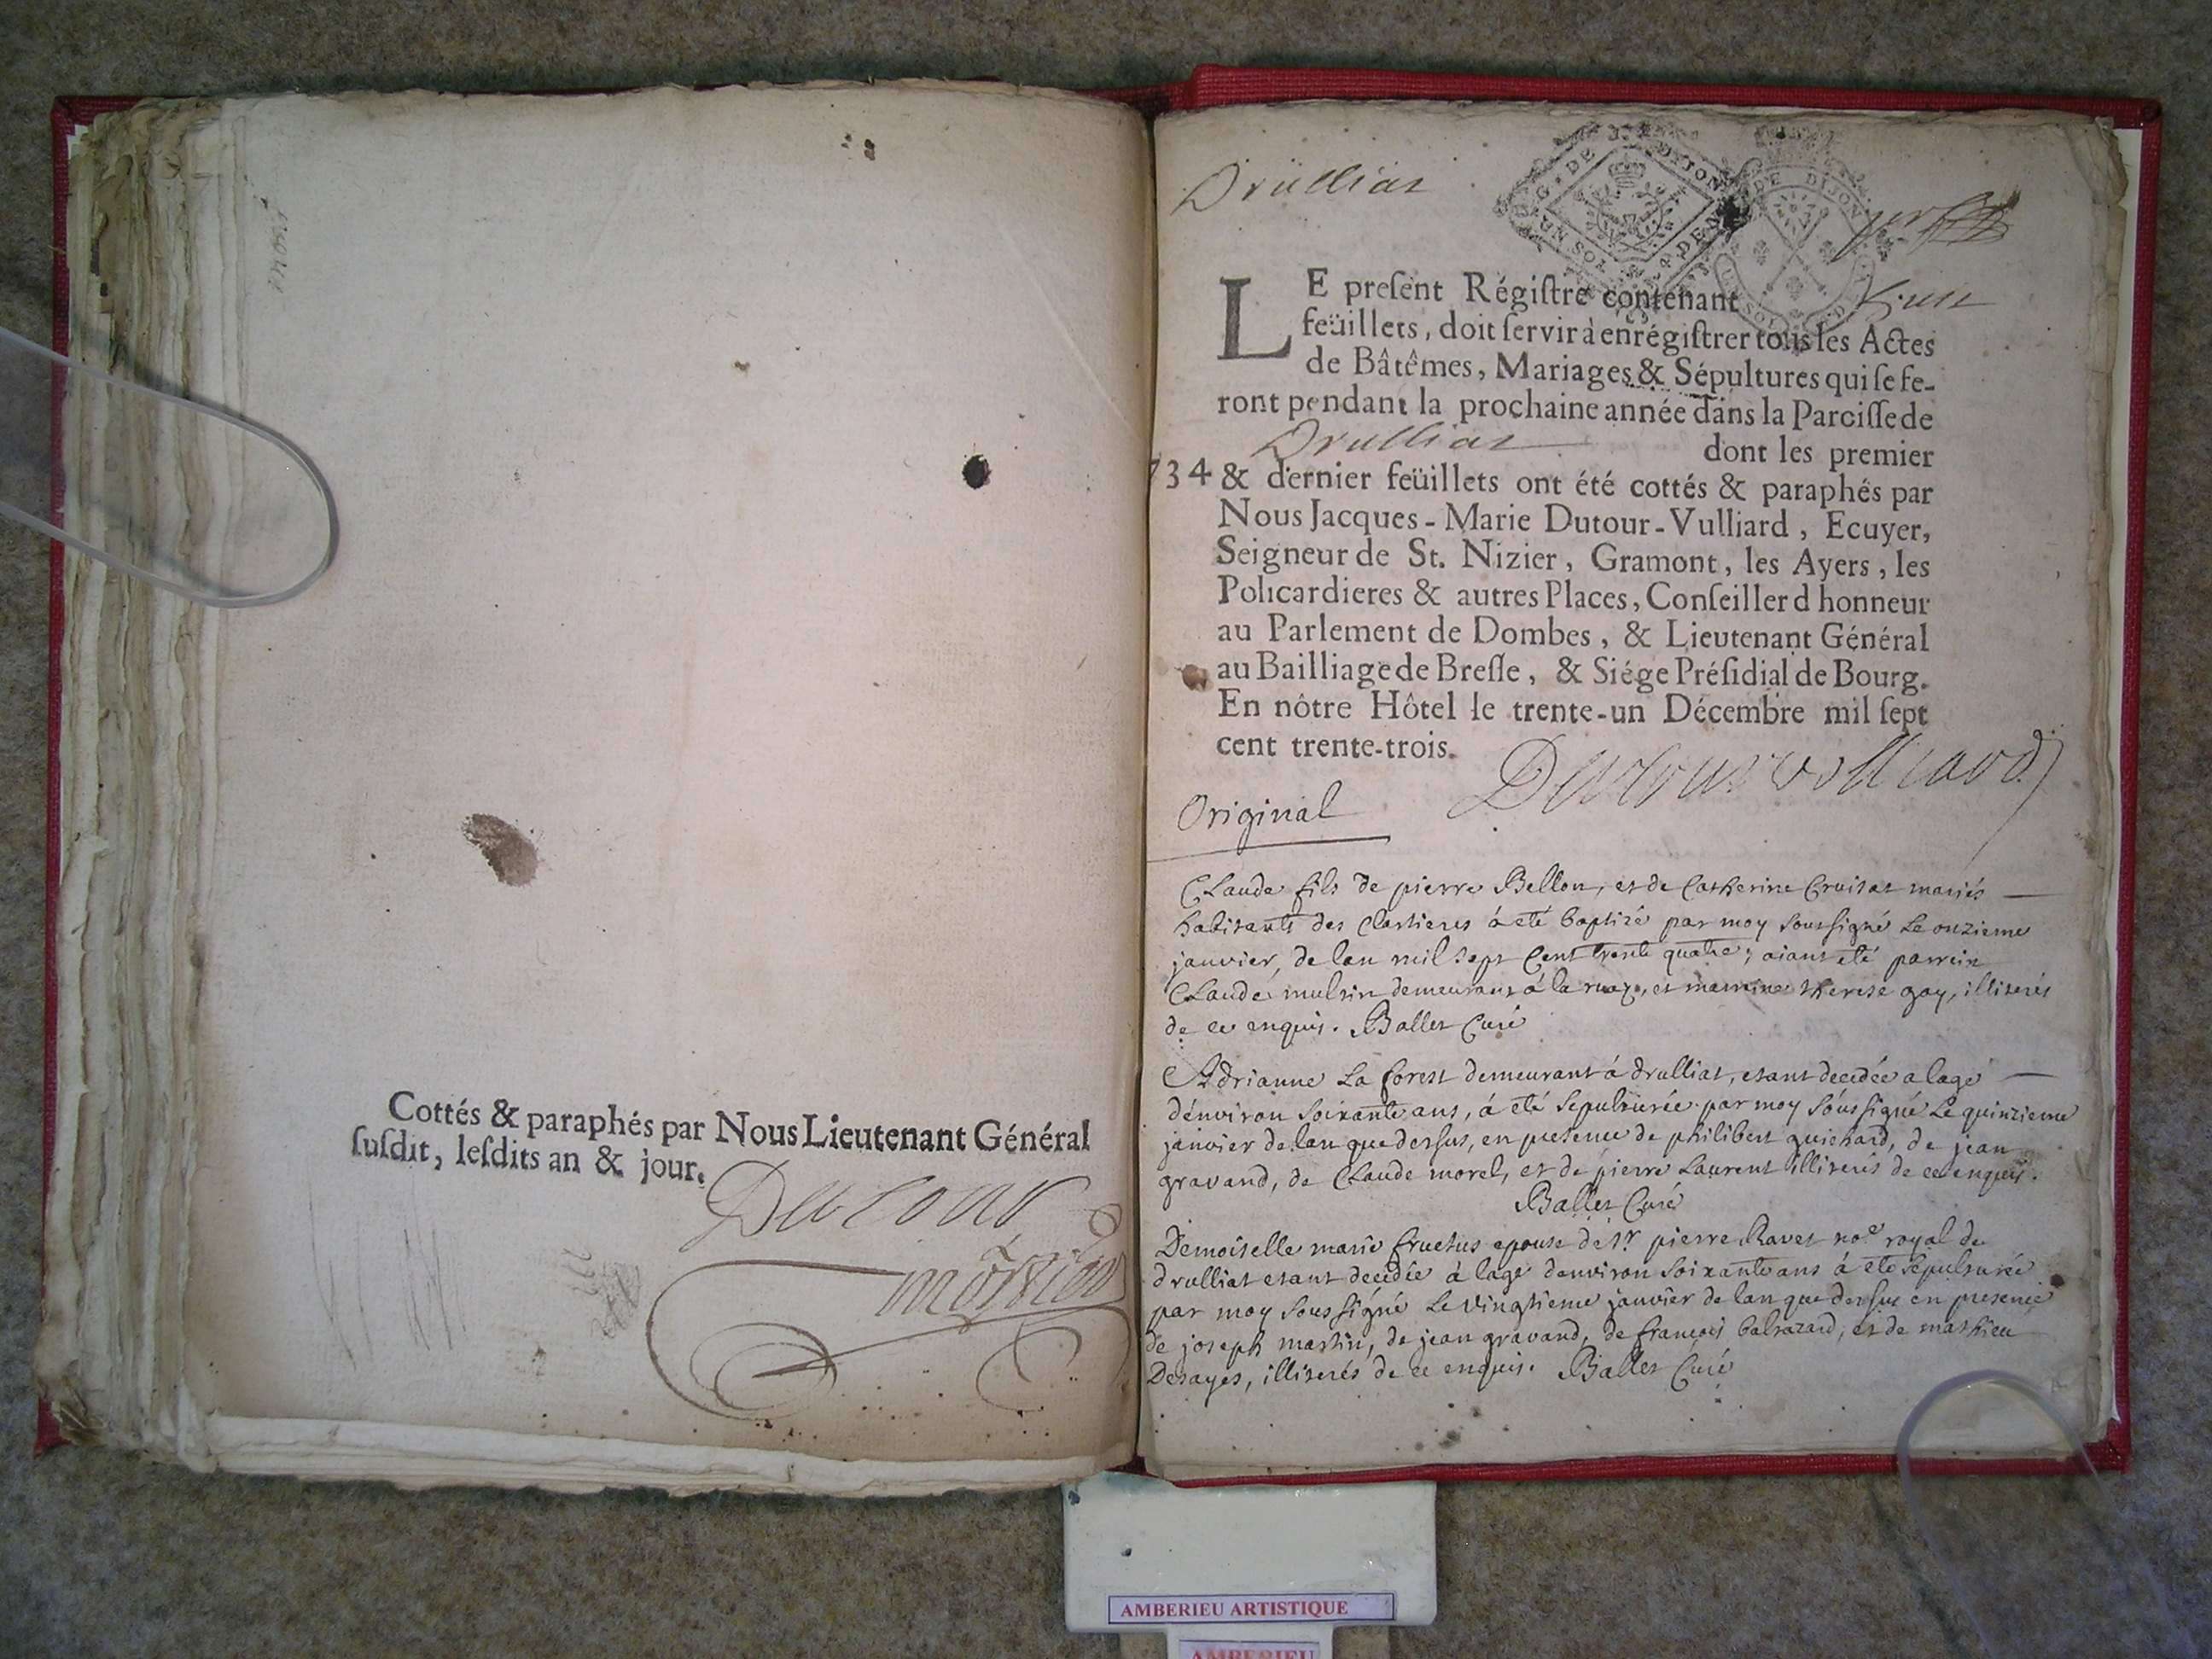 Cottés & paraphés par Nous Lieutenant Général
ſuſdit, leſdits an & jour.
Dutour
Drulliat
GÉN. DE DIJON
UN SOL
DE DIJON
LE preſent Régiſtre contenant
feüillets, doit ſervir à enrégiſtrer tous les Actes
de Bâtêmes, Mariages & Sépultures qui ſe fe-
ront pendant la prochaine année dans la Paroiſſe de
Drulliat dont les premier
734 & dernier feüillets ont été cottés & paraphés par
Nous Jacques-Marie Dutour-Vulliard, Ecuyer,
Seigneur de St. Nizier, Gramont, les Ayers, les
Policardieres & autres Places, Conſeiller d honneur
au Parlement de Dombes, & Lieutenant Général
au Bailliage de Breſſe, & Siége Préſidial de Bourg.
En nôtre Hôtel le trente-un Décembre mil ſept
cent trente-trois.
Dutour vulliard
Original
Claude fils de pierre Bellon, et de Catherine Cruisat mariés
habitants des Clartieres á eté baptizé par moy soussigné le onzieme
janvier, de lan mil sept Cent trente quatre; aiant eté parrein
Claude mulsin demeurant á la ruaz, et marrine therese gay, illiterés
de ce enquis. Ballet Curé
Adrianne La forest demeurant á drulliat, etant decedée a lage
d'environ soixante ans, á eté sepulturée par moy soussigné le quinzieme
janvier de lan que dessus, en presence de philibert guichard, de jean
gravand, de Claude morel, et de pierre Laurent illiterés de ce enquis.
Ballet Curé
Demoiselle marie fructus epouse de Sr pierre Ravet noe royal de
drulliat etant decedée á lage denviron soixante ans á eté sepulturée
par moy soussigné le vingtieme janvier de lan que dessus en presence
de joseph martin, de jean gravand, de françois balsazard, et de mathieu
Desayes, illiterés de ce enquis. Ballet Curé
AMBERIEU ARTISTIQUE
AMBERIEU